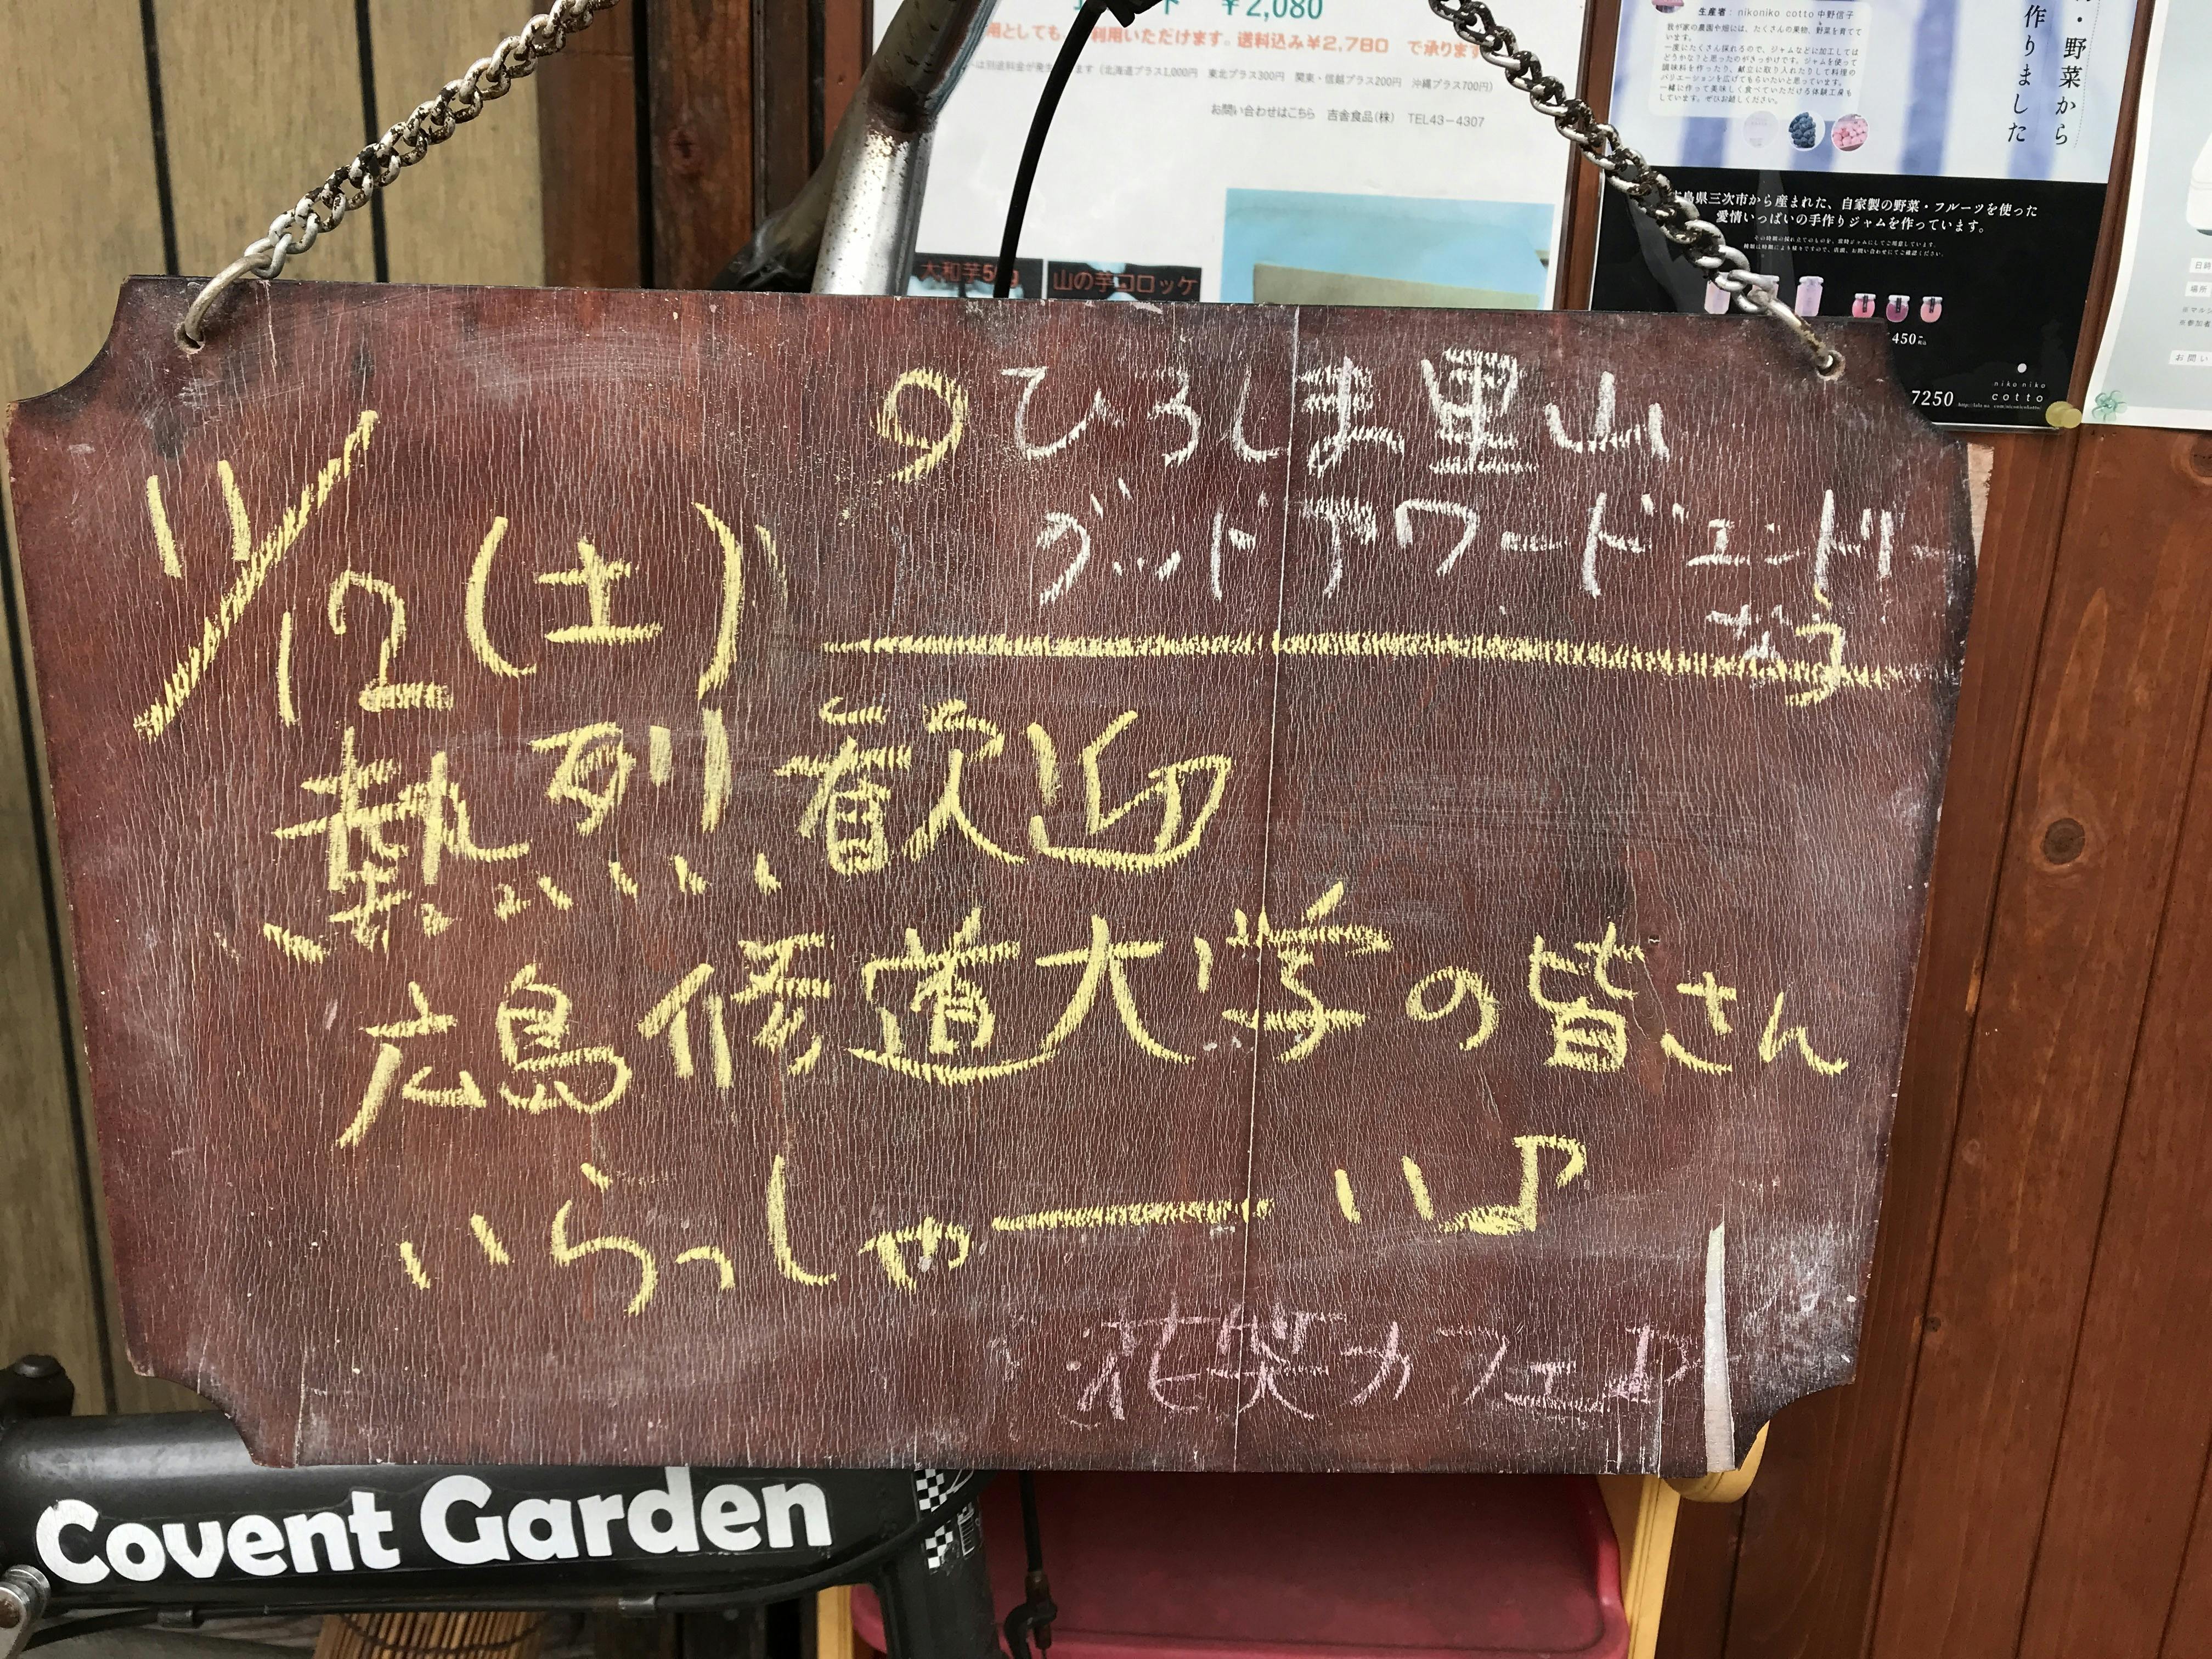 ¥2,080
利用いただけます。送料込み¥2,780 で承ります
(北海道プラス1,000円 東北プラス300円 関東・信越プラス200円 沖縄プラス700円)
お問い合わせはこちら 吉舎食品(株) TEL43-4307
大和芋50g
山の芋コロッケ
生産者: nikoniko cotto 中野信子
我が家の農園や畑には、たくさんの果物、野菜を育てています。
・野菜から
作りました
島県三次市から産まれた、自家製の野菜・フルーツを使った
愛情いっぱいの手作りジャムを作っています。
450
niko niko
cotto
7250
日時
場所
お問い
ひろしま里山
グッドアワードエントリー
No.3
11/12(土)
熱烈歓迎
広島修道大学の皆さん
いらっしゃーい♪
花笑カフェ
Covent Garden